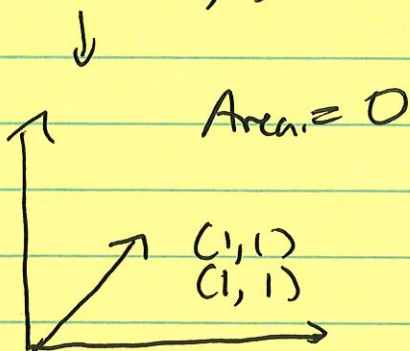 Area. = 0
(1,1)
(1, 1)